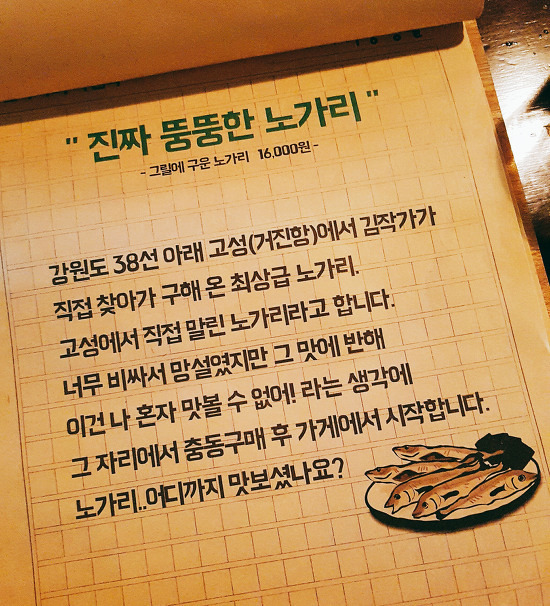 " 진짜 뚱뚱한 노가리 "
- 그릴에 구운 노가리 16,000원 -
강원도 38선 아래 고성(거진항)에서 김작가가
직접 찾아가 구해 온 최상급 노가리.
고성에서 직접 말린 노가리라고 합니다.
너무 비싸서 망설였지만 그 맛에 반해
이건 나 혼자 맛볼 수 없어! 라는 생각에
그 자리에서 충동구매 후 가게에서 시작합니다.
노가리..어디까지 맛보셨나요?